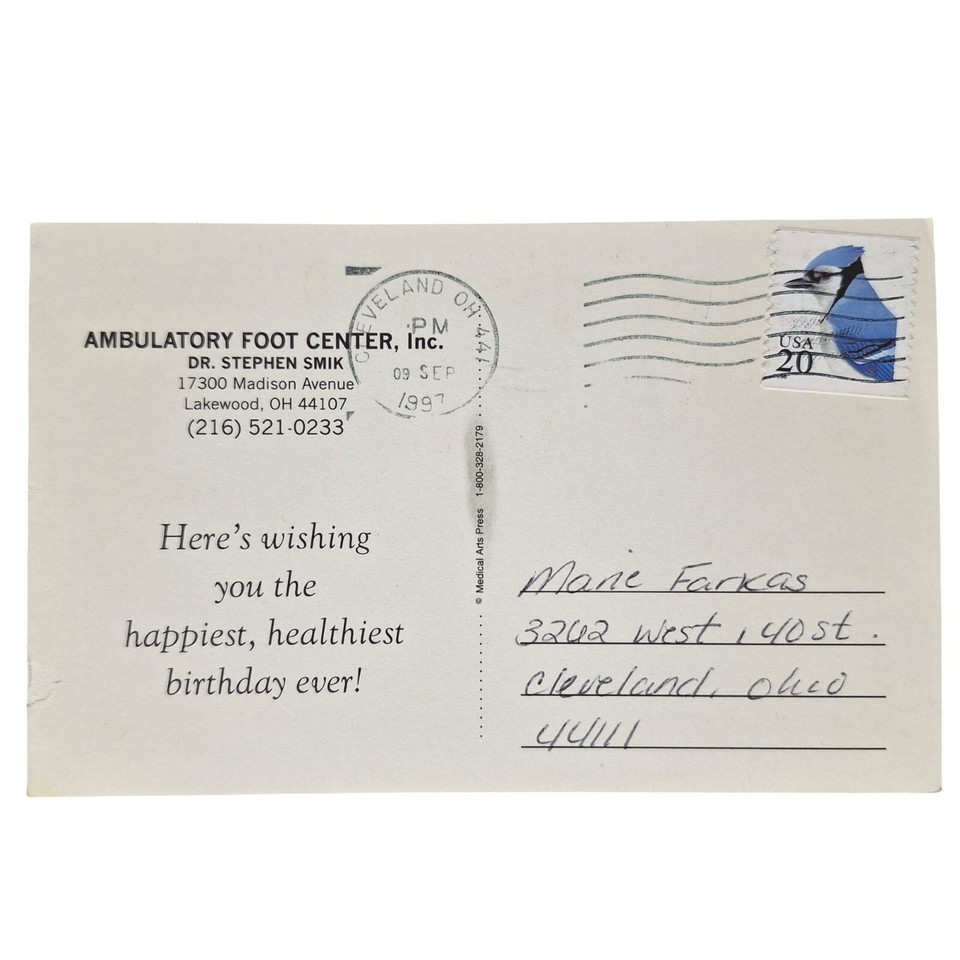 AMBULATORY FOOT CENTER, Inc.
DR. STEPHEN SMIK
17300 Madison Avenue
Lakewood, OH 44107
(216) 521-0233
CLEVELAND OH 441
PM
09 SEP
1997
USA
20
Here's wishing
you the
happiest, healthiest
birthday ever!
© Medical Arts Press 1-800-328-2179
Marie Farkas
3262 West 140 St.
Cleveland, Ohio
44111